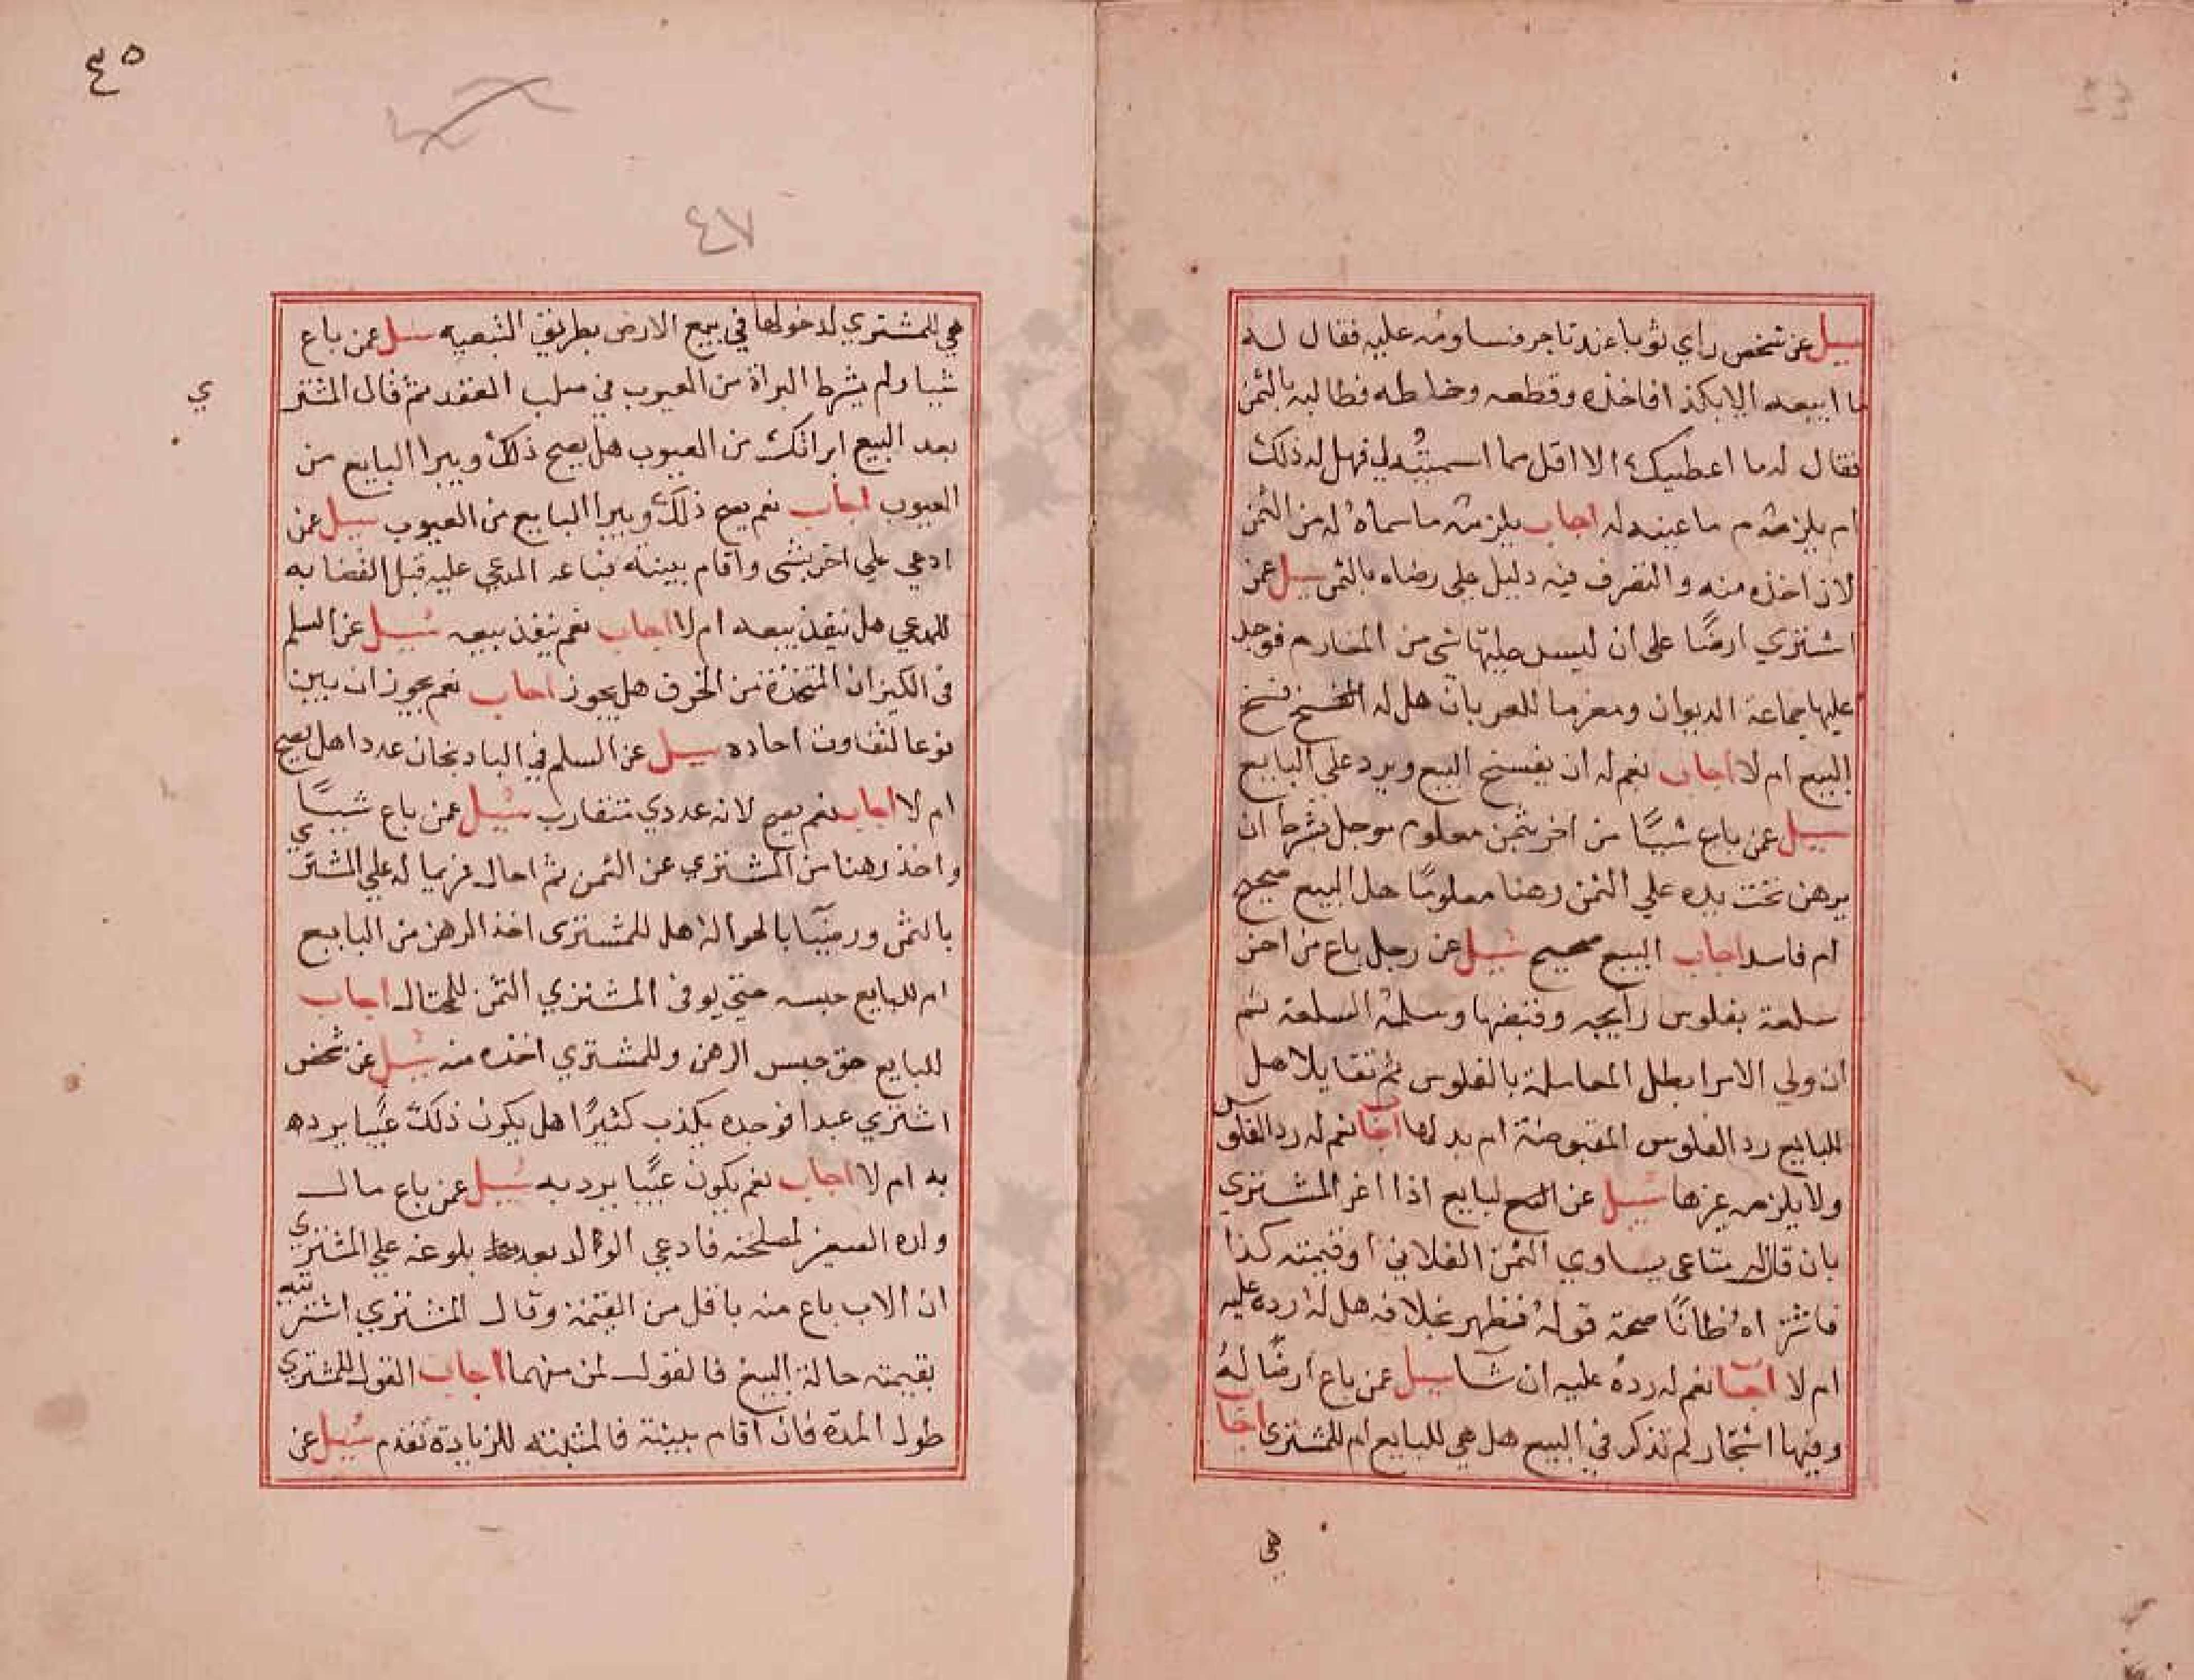 سيل عن شخص راي ثوبا عند تاجر فساومه عليه فقال له
ما ابيعه الا بكذا فاخذه وقطعه وخاطه فطالبه بالثمن
فقال له ما اعطيك الا اقل مما اسميته لي فهل له ذلك
ام يلزمه ما عينه له اجاب يلزمه ما سماه له من الثمن
لان اخذه منه والتصرف فيه دليل علي رضاه بالثمن سيل عمن
اشتري ارضًا على ان ليس عليها شي من المغارم فوجد
عليها جماعة الديوان ومغرما للعربان هل له فسخ
البيع ام لا اجاب نعم له ان يفسخ البيع ويرد علي البايع
سيل عمن باع شيئًا من اخر بثمن معلوم موجل بشرط ان
يرهن تحت يده علي الثمن رهنا معلومًا هل البيع صحيح
ام فاسد اجاب البيع صحيح سيل عن رجل باع من اخر
سلعة بفلوس رايجه وقبضها وسلمه السلعة ثم
ان ولي الامر ابطل المعاملة بالفلوس ثم تقايلا هل
للبايع رد الفلوس المقبوضة ام بدلها اجاب نعم له رد الفلوس
ولا يلزمه غيرها سيل عن البايع اذا اغر المشتري
بان قال له متاعي يساوي الثمن الفلاني او قيمته كذا
فاشتراه ظانًا صحة قوله فظهر بخلافه هل له رده عليه
ام لا اجاب نعم له رده عليه ان شا سيل عمن باع ارضًا له
وفيها اشجار لم تذكر في البيع هل هي للبايع ام للمشتري اجاب
هي
٤٥
٤٧
هي للمشتري لدخولها في بيع الارض بطريق التبعيه سيل عمن باع
شيا ولم يشرط البراة من العيوب في صلب العقد ثم قال المشتر
ي
بعد البيع ابراتك من العيوب هل يصح ذلك ويبرا البايع من
العيوب اجاب نعم يصح ذلك ويبرا البايع من العيوب سيل عمن
ادعي علي اخر بشي واقام بينة فباعه المدعي عليه قبل القضا به
للمدعي هل ينفذ بيعه ام لا اجاب نعم ينفذ بيعه سيل عن السلم
في الكيزان المتخذة من الخزف هل يجوز اجاب نعم يجوز ان بين
نوعا لتفاوت احاده سيل عن السلم في البادنجان عددا هل يصح
ام لا اجاب نعم يصح لانه عددي متقارب سيل عمن باع شيئًا
واخذ رهنا من المشتري عن الثمن ثم احال غريما له علي المشتري
بالثمن ورضيا بالحوالة هل للمشتري اخذ الرهن من البايع
ام للبايع حبسه حتي يوفي المشتري الثمن للمحتال اجاب
للبايع حق حبس الرهن وللمشتري اخذه منه سيل عن شخص
اشتري عبدا فوجده يكذب كثيرًا هل يكون ذلك عيبًا يرده
به ام لا اجاب نعم يكون عيبًا يرد به سيل عمن باع مال
ولده الصغير لمصلحته فادعي الولد بعد بلوغه علي المشتري
ان الاب باع منه باقل من القيمة وقال المشتري اشتريته
بقيمته حالة البيع فالقول لمن منهما اجاب القول للمشتري
طول المدة فان اقام بينة فالمثبتة للزيادة تقدم سيل عن